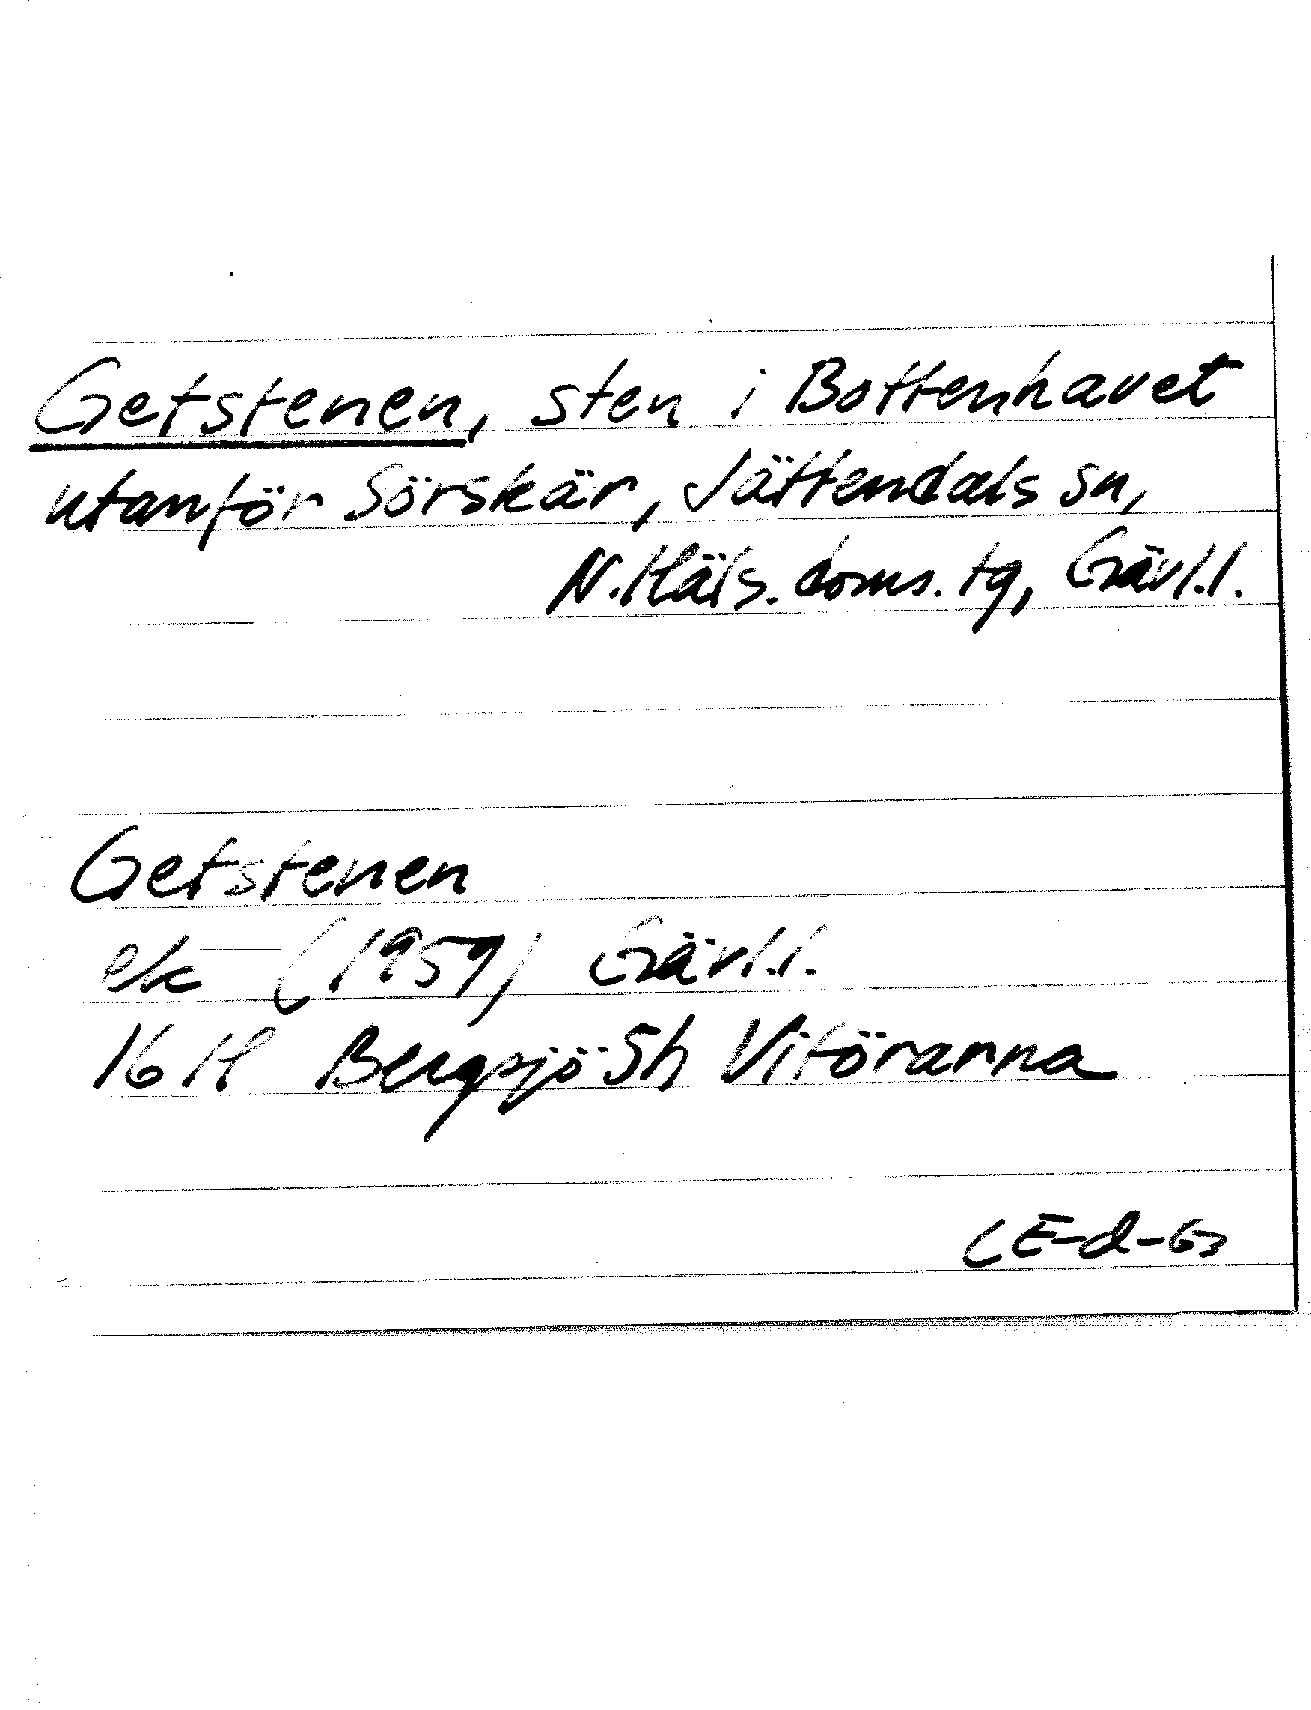 Getstenen, sten i Bottenhavet
utanför Sörskär, Jättendals sn,
N. Häls. doms. tg, Gävl.l.
Getstenen
ek (1959) Gävl.l.
16 H Bergsjö 5h Vitörarna